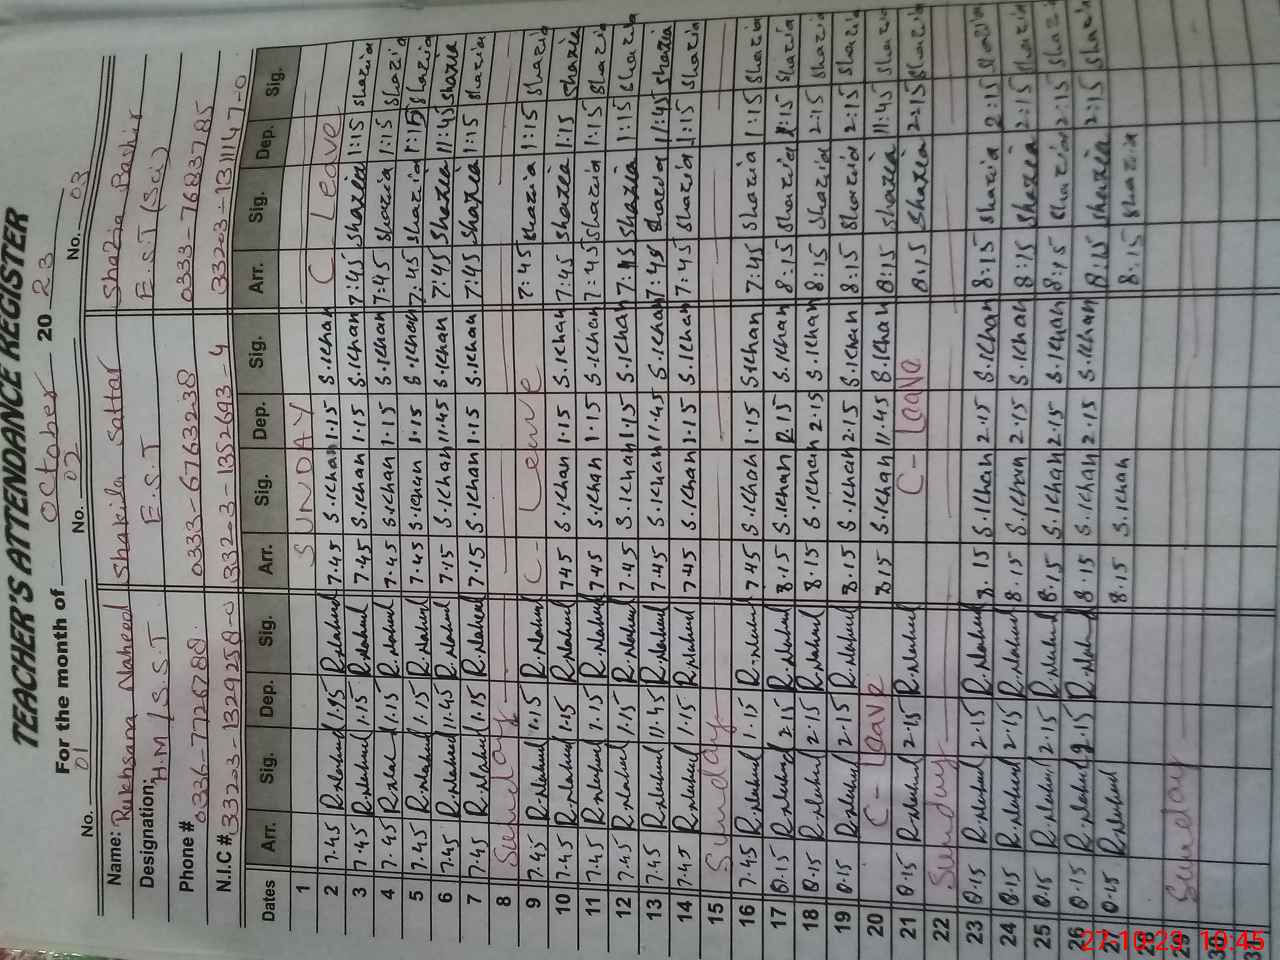 TEACHER'S ATTENDANCE REGISTER
For the month of October 20 23
No. 01 No. 02 No. 03
Name: Rukhsana Naheed Shakila Sattar Shazia Bashir
Designation: H.M / S.S.T E.S.T E.S.T (Sci)
Phone # 0336-7726788 0333-6763238 0333-7683785
N.I.C # 33203-1329258-0 332-3-1352693-4 33203-1311147-0
Dates Arr. Sig. Dep. Sig. Arr. Sig. Dep. Sig. Arr. Sig. Dep. Sig.
1 SUNDAY
2 7.45 R.Nahed 1.15 R.Nahed 7.45 S.Khan 1.15 S.Khan C Leave
3 7.45 R.Nahed 1.15 R.Nahed 7.45 S.Khan 1.15 S.Khan 7:45 Shazia 1:15 Shazia
4 7.45 R.Nahed 1.15 R.Nahed 7.45 S.Khan 1.15 S.Khan 7:45 Shazia 1:15 Shazia
5 7.45 R.Nahed 1.15 R.Nahed 7.45 S.Khan 1.15 S.Khan 7:45 Shazia 1:15 Shazia
6 7.45 R.Nahed 11.45 R.Nahed 7.15 S.Khan 11.45 S.Khan 7:45 Shazia 11:45 Shazia
7 7.45 R.Nahed 1.15 R.Nahed 7.15 S.Khan 1.15 S.Khan 7:45 Shazia 1:15 Shazia
8 Sunday
9 7.45 R.Nahed 1.15 R.Nahed C- Leave 7:45 Shazia 1:15 Shazia
10 7.45 R.Nahed 1.15 R.Nahed 745 S.Khan 1.15 S.Khan 7:45 Shazia 1:15 Shazia
11 7.45 R.Nahed 1.15 R.Nahed 7.45 S.Khan 1.15 S.Khan 7:45 Shazia 1:15 Shazia
12 7.45 R.Nahed 1.15 R.Nahed 7.45 S.Khan 1.15 S.Khan 7:45 Shazia 1:15 Shazia
13 7.45 R.Nahed 11.45 R.Nahed 7.45 S.Khan 11.45 S.Khan 7:45 Shazia 11:45 Shazia
14 7.45 R.Nahed 1.15 R.Nahed 7.45 S.Khan 1.15 S.Khan 7:45 Shazia 1:15 Shazia
15 Sunday
16 7.45 R.Nahed 1.15 R.Nahed 7.45 S.Khan 1.15 S.Khan 7:45 Shazia 1:15 Shazia
17 8.15 R.Nahed 2.15 R.Nahed 8.15 S.Khan 2.15 S.Khan 8:15 Shazia 2:15 Shazia
18 8.15 R.Nahed 2.15 R.Nahed 8.15 S.Khan 2.15 S.Khan 8:15 Shazia 2:15 Shazia
19 8.15 R.Nahed 2.15 R.Nahed 8.15 S.Khan 2.15 S.Khan 8:15 Shazia 2:15 Shazia
20 C- Leave 8.15 S.Khan 11.45 S.Khan 8:15 Shazia 11:45 Shazia
21 8.15 R.Nahed 2.15 R.Nahed C- Leave 8:15 Shazia 2:15 Shazia
22 Sunday
23 8.15 R.Nahed 2.15 R.Nahed 8.15 S.Khan 2.15 S.Khan 8:15 Shazia 2:15 Shazia
24 8.15 R.Nahed 2.15 R.Nahed 8.15 S.Khan 2.15 S.Khan 8:15 Shazia 2:15 Shazia
25 8.15 R.Nahed 2.15 R.Nahed 8.15 S.Khan 2.15 S.Khan 8:15 Shazia 2:15 Shazia
26 8.15 R.Nahed 2.15 R.Nahed 8.15 S.Khan 2.15 S.Khan 8:15 Shazia 2:15 Shazia
27 8.15 R.Nahed 8.15 S.Khan 8:15 Shazia
28
29 Sunday
30
31
27.10.23 10:45